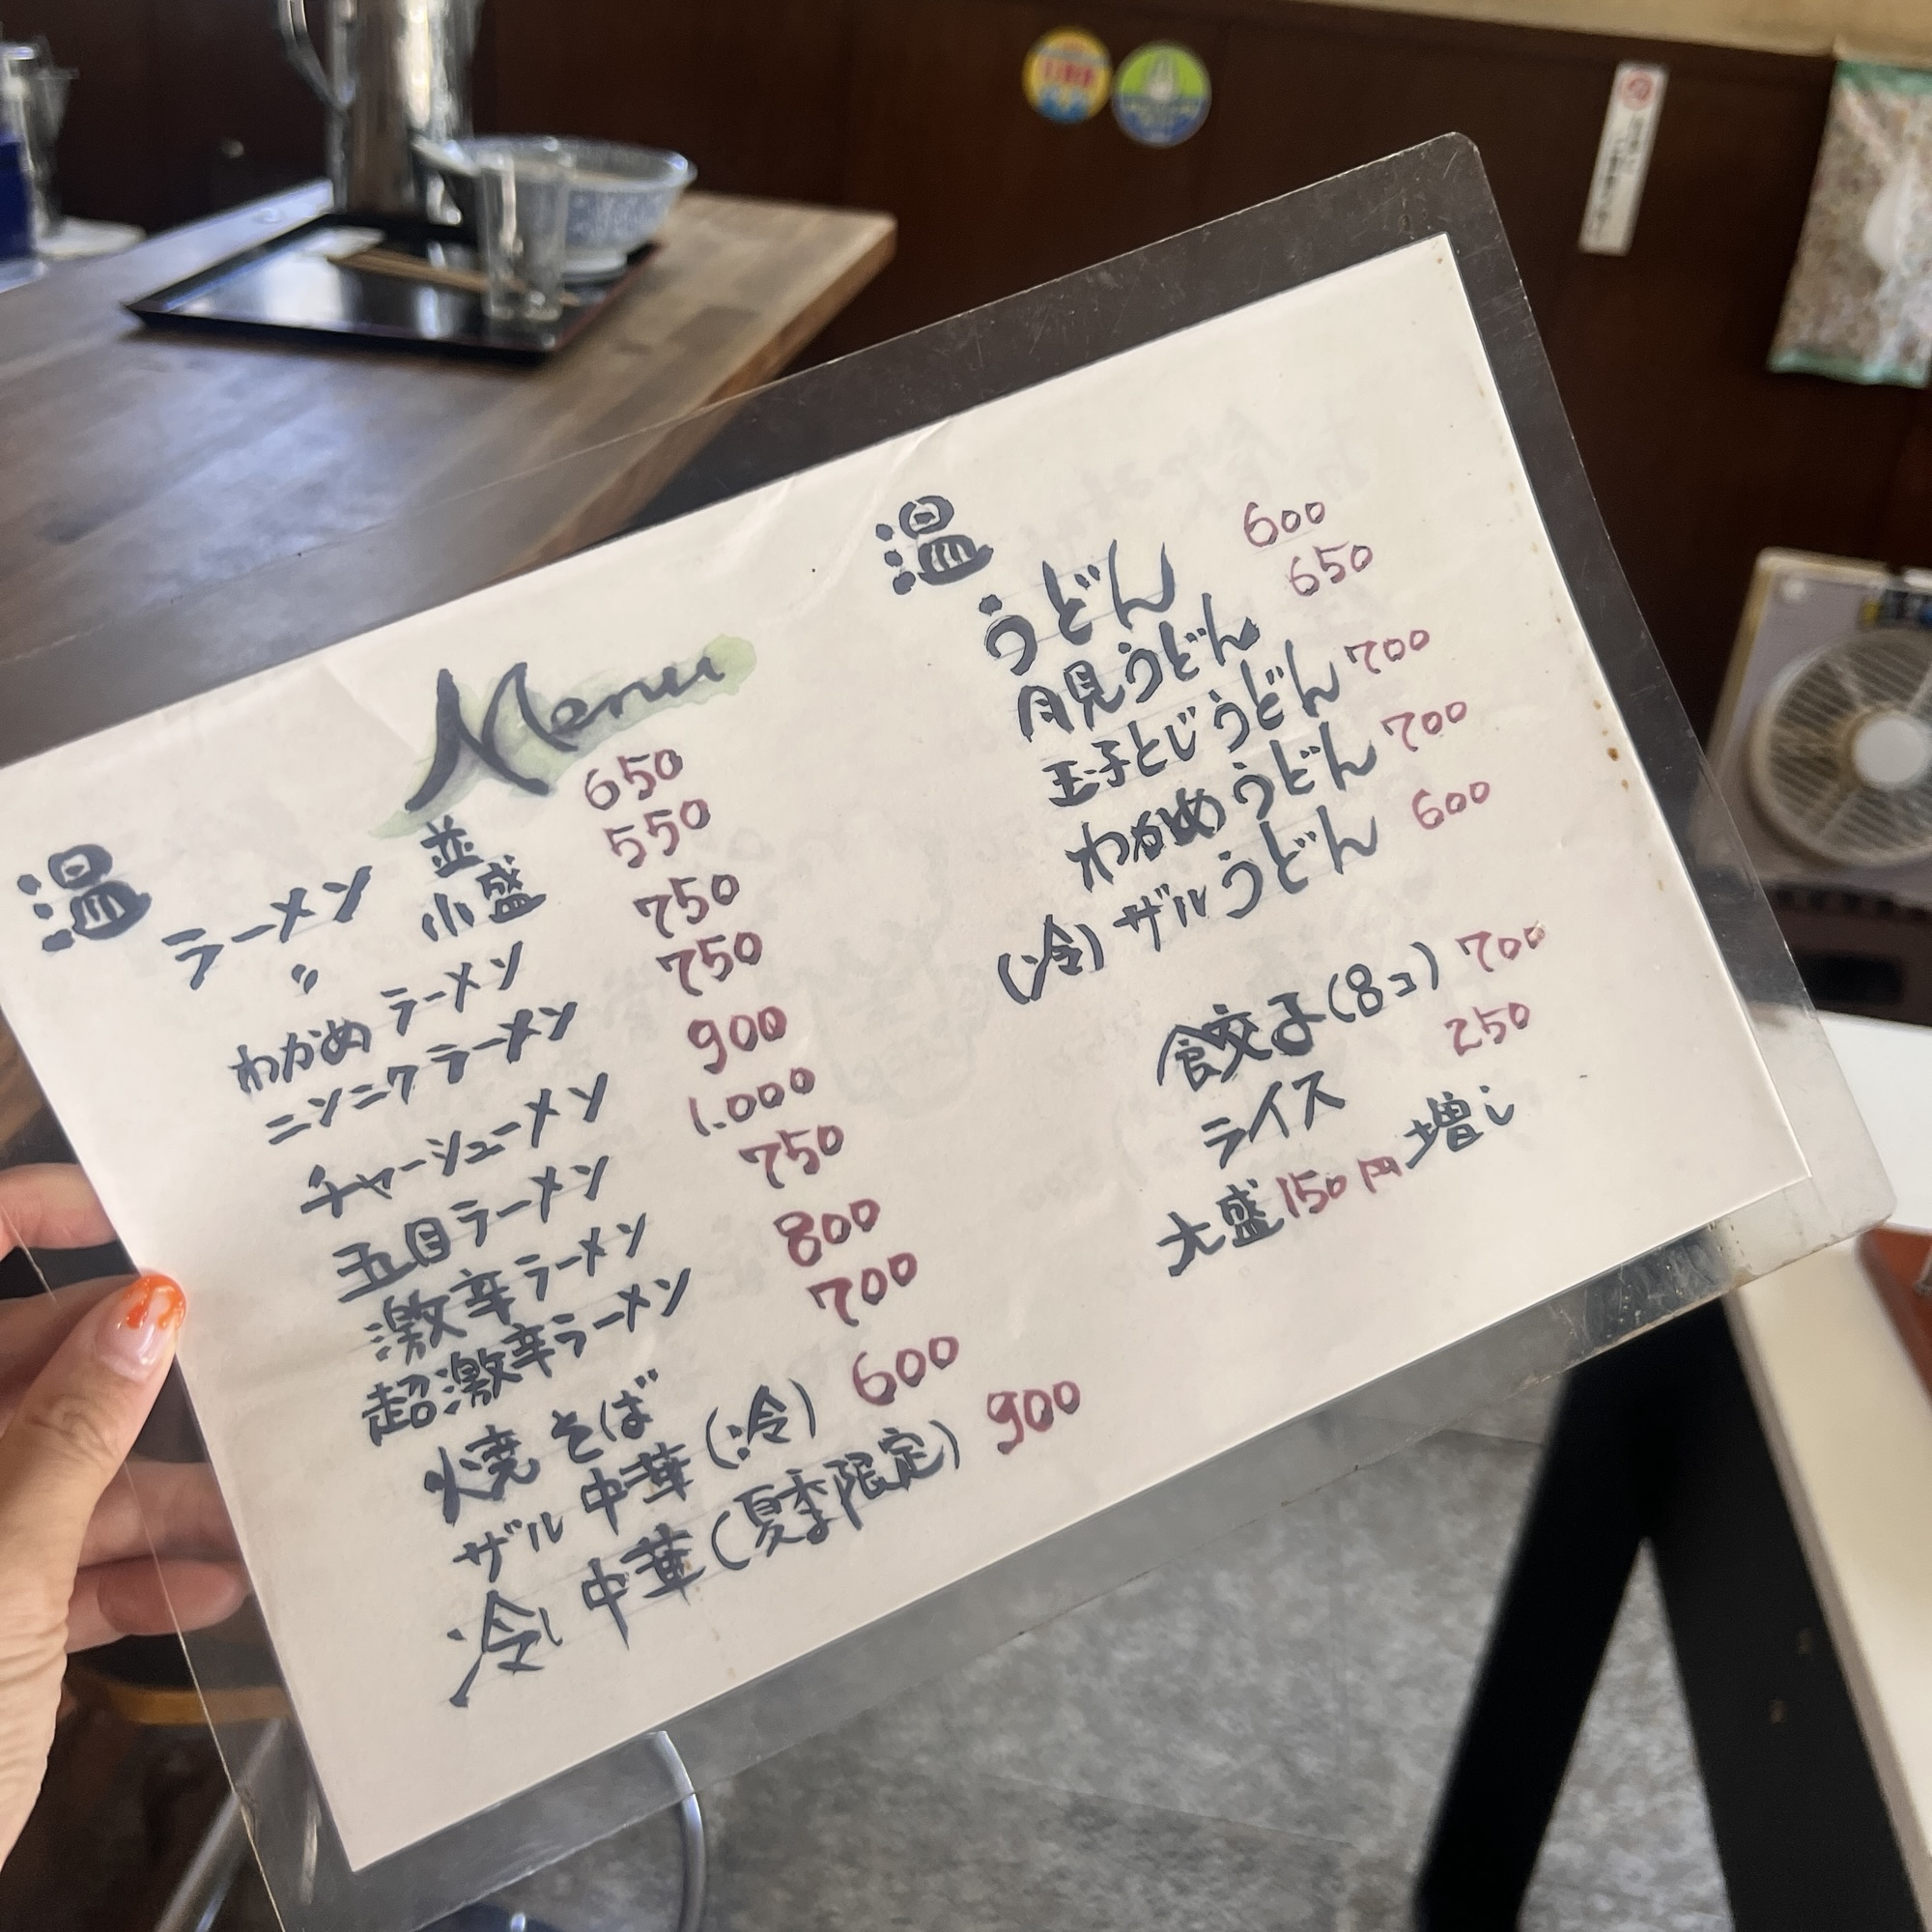 Menu
温
ラーメン 並 650
〃 小盛 550
わかめラーメン 750
ニンニクラーメン 750
チャーシューメン 900
五目ラーメン 1.000
激辛ラーメン 750
超激辛ラーメン 800
焼そば 700
ザル中華(冷) 600
冷し中華(夏季限定) 900
温
うどん 600
月見うどん 650
玉子とじうどん 700
わかめうどん 700
(冷)ザルうどん 600
餃子(8コ) 700
ライス 250
大盛150円増し